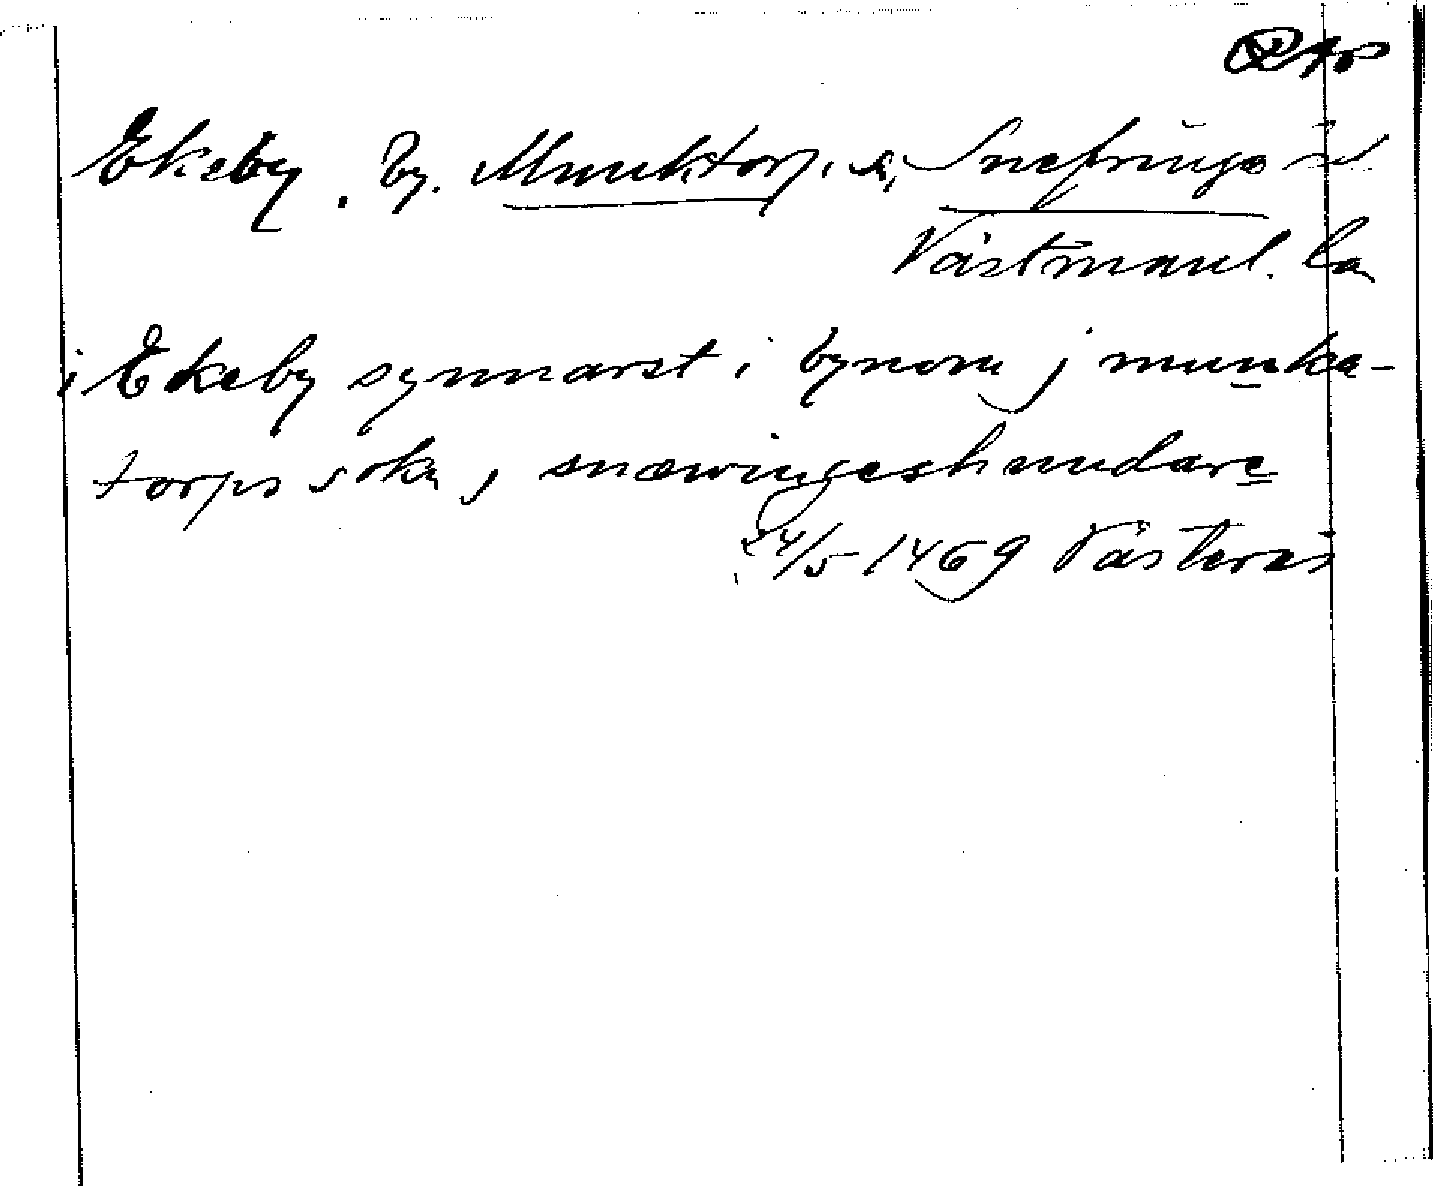 Ekeby. by. Munktorp. s, Snefringe
Västmanl. la
i Ekeby synnarst i bynom j munka-
torps sokn, snæwingeshundare
24/5 1469 Västerås